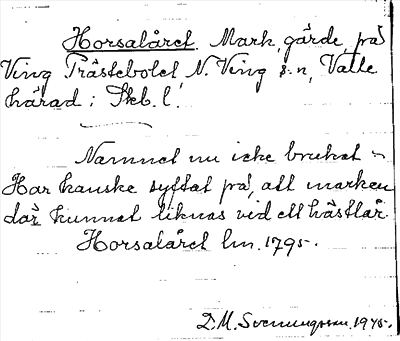 Horsalåret. Mark, gärde, på
Ving Prästebolet N. Ving s:n, Valle
härad i Skb. l.
Namnet nu icke brukat -
Har kanske syftat på, att marken
där kunnat liknas vid ett hästlår.
Horsalåret lm. 1795.
D. M. Svenungsson. 1945.